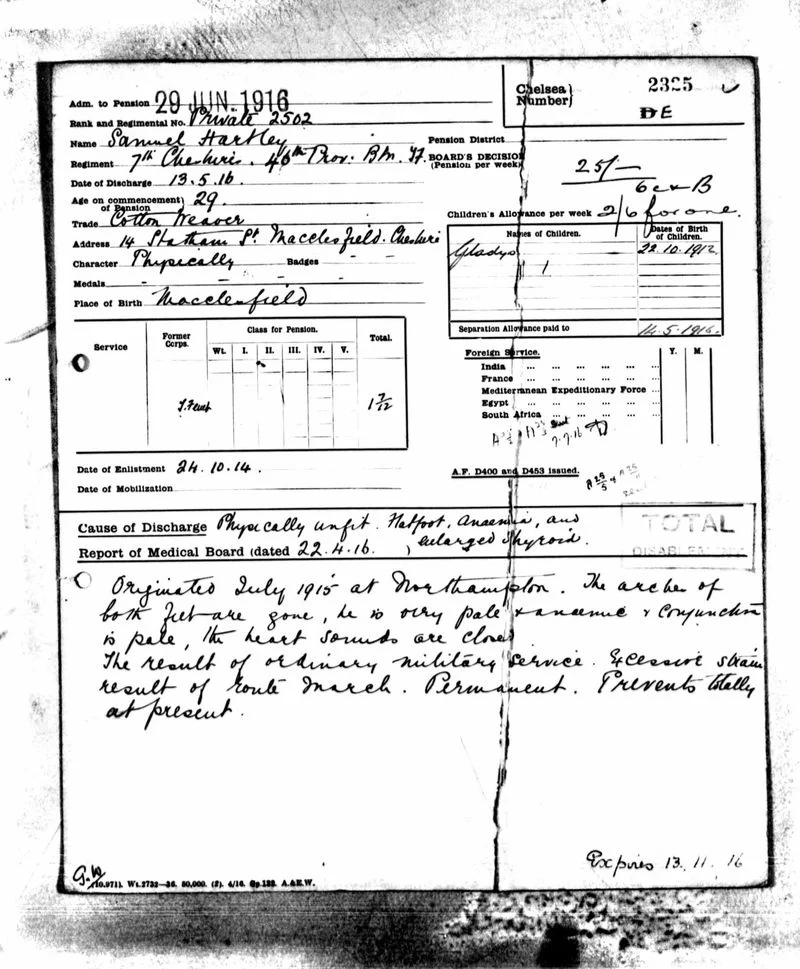 Chelsea Number} 2325
DE
Adm. to Pension 29 JUN. 1916
Rank and Regimental No. Private 2502
Name Samuel Hartley
Regiment 7th Cheshire. 46th Prov: Bn. T.F.
Date of Discharge 13.5.16.
Age on commencement of Pension} 29.
Trade Cotton Weaver
Address 14 Statham St. Macclesfield. Cheshire
Character Physically Badges - -
Medals - - - - -
Place of Birth Macclesfield
Pension District
BOARD'S DECISION (Pension per week)
25/-
Children's Allowance per week 2/6 for one.
Names of Children. Dates of Birth of Children.
Gladys 22.10.1912.
1
Separation Allowance paid to 14.5.1916.
Service Former Corps. Class for Pension. Total.
Wt. I. II. III. IV. V.
1 7/12
Foreign Service. Y. M.
India ... ... ... ... ...
France ... ... ... ... ...
Mediterranean Expeditionary Force ...
Egypt ... ... ... ... ...
South Africa ... ... ... ...
7.7.16
Date of Enlistment 24.10.14.
Date of Mobilization
A.F. D400 and D453 issued.
Cause of Discharge Physically unfit. Flatfoot, Anaemia, and
Report of Medical Board (dated 22.4.16. ) enlarged Thyroid.
TOTAL
DISABLEMENT
Originated July 1915 at Northampton. The arches of
both feet are gone, he is very pale & anaemic & conjunctiva
is pale, the heart sounds are closed
The result of ordinary military service. Excessive strain
result of route march. Permanent. Prevents totally
at present.
Expires 13.11.16
G.W
(10.971). Wt.2732—36. 50,000. (2). 4/16. Gp.138. A.&E.W.